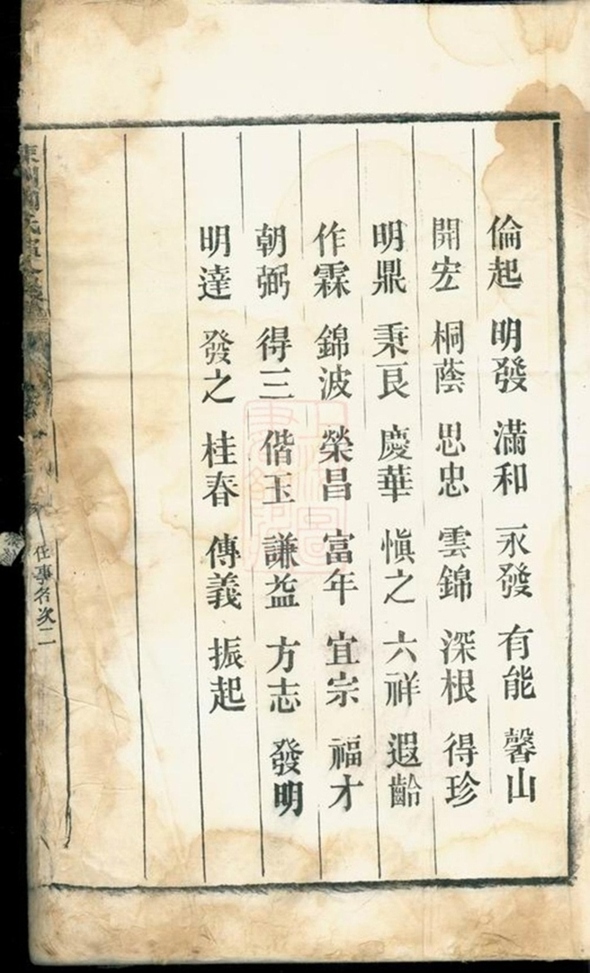 倫起 明發 滿和 永發 有能 馨山
開宏 桐蔭 思忠 雲錦 深根 得珍
明鼎 秉艮 慶華 慎之 六祥 遐齡
作霖 錦波 榮昌 富年 宜宗 福才
朝弼 得三 偕玉 謙益 方志 發明
明達 發之 桂春 傳義 振起
任事名次二